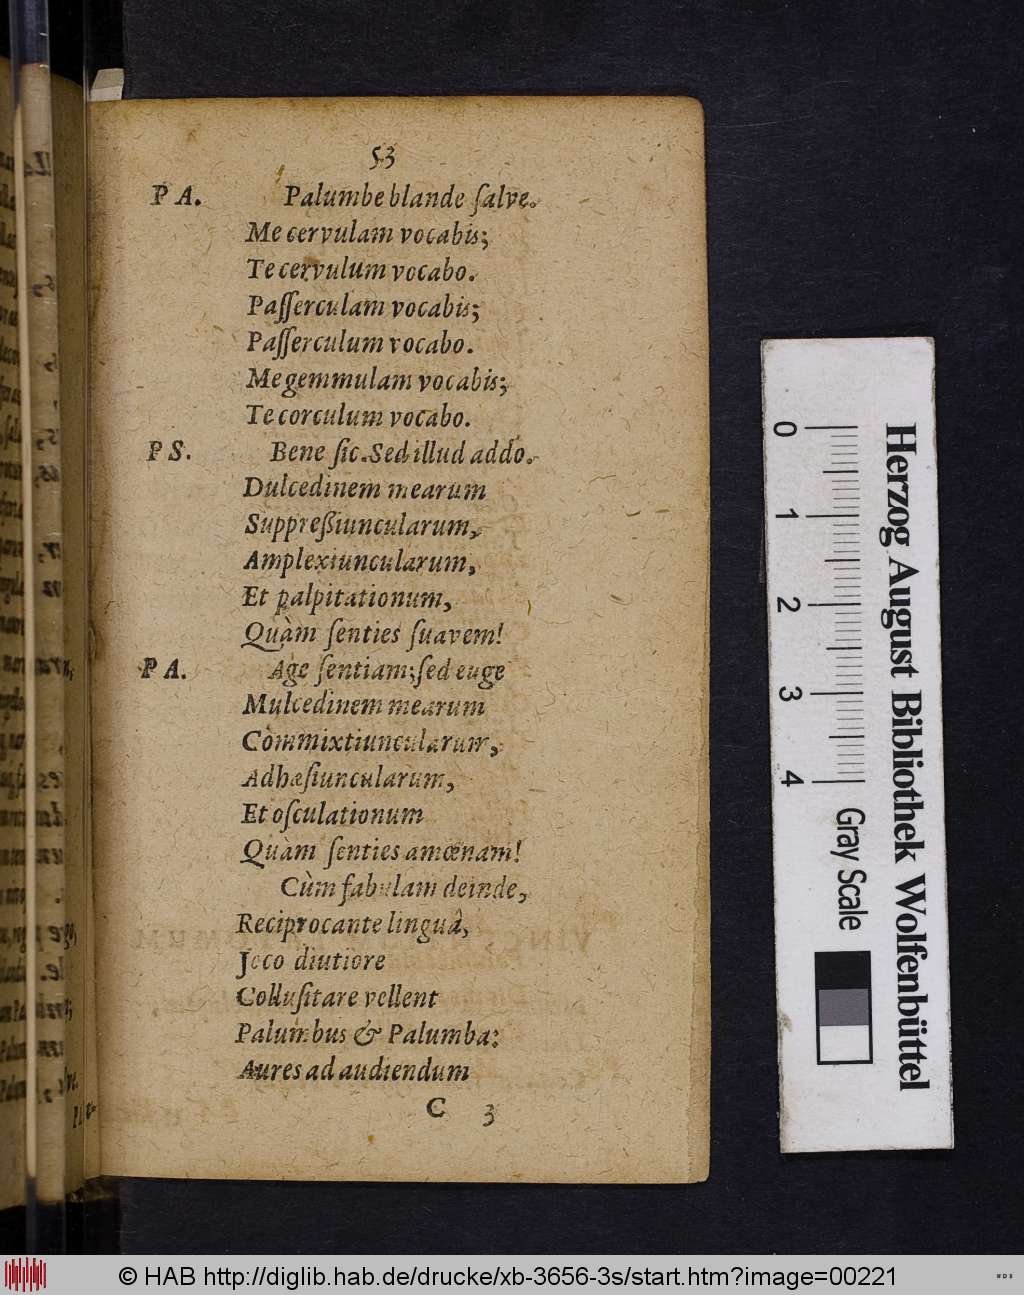 53
P A. Palumbe blande ſalve.
Me cervulam vocabis;
Te cervulum vocabo.
Paſſerculam vocabis;
Paſſerculum vocabo.
Me gemmulam vocabis;
Te corculum vocabo.
P S. Bene ſic. Sed illud addo.
Dulcedinem mearum
Suppreßiuncularum,
Amplexiuncularum,
Et palpitationum,
Quàm ſenties ſuavem!
P A. Age ſentiam; ſed euge
Mulcedinem mearum
Commixtiuncularum,
Adhæſiuncularum,
Et oſculationum
Quàm ſenties amœnam!
Cùm fabulam deinde,
Reciprocante linguâ,
Joco diutiore
Colluſitare vellent
Palumbus & Palumba:
Aures ad audiendum
C 3
0 1 2 3 4
Gray Scale
Herzog August Bibliothek Wolfenbüttel
© HAB http://diglib.hab.de/drucke/xb-3656-3s/start.htm?image=00221